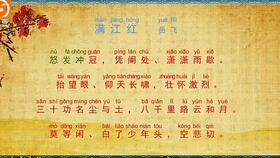 mǎn jiāng hóng yuè fēi
满江红 岳飞
nù fà chōng guān píng lán chù xiāo xiāo yǔ xiē
怒发冲冠，凭阑处、潇潇雨歇。
tái wàng yǎn yǎng tiān cháng xiào zhuàng huái jī liè
抬望眼、仰天长啸，壮怀激烈。
sān shí gōng míng chén yǔ tǔ bā qiān lǐ lù yún hé yuè
三十功名尘与土，八千里路云和月。
mò děng xián bái liǎo shào nián tóu kōng bēi qiè
莫等闲、白了少年头，空悲切。